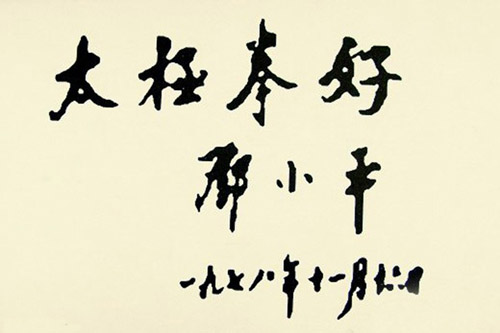 太极拳好
邓小平
一九七八年十一月十六日